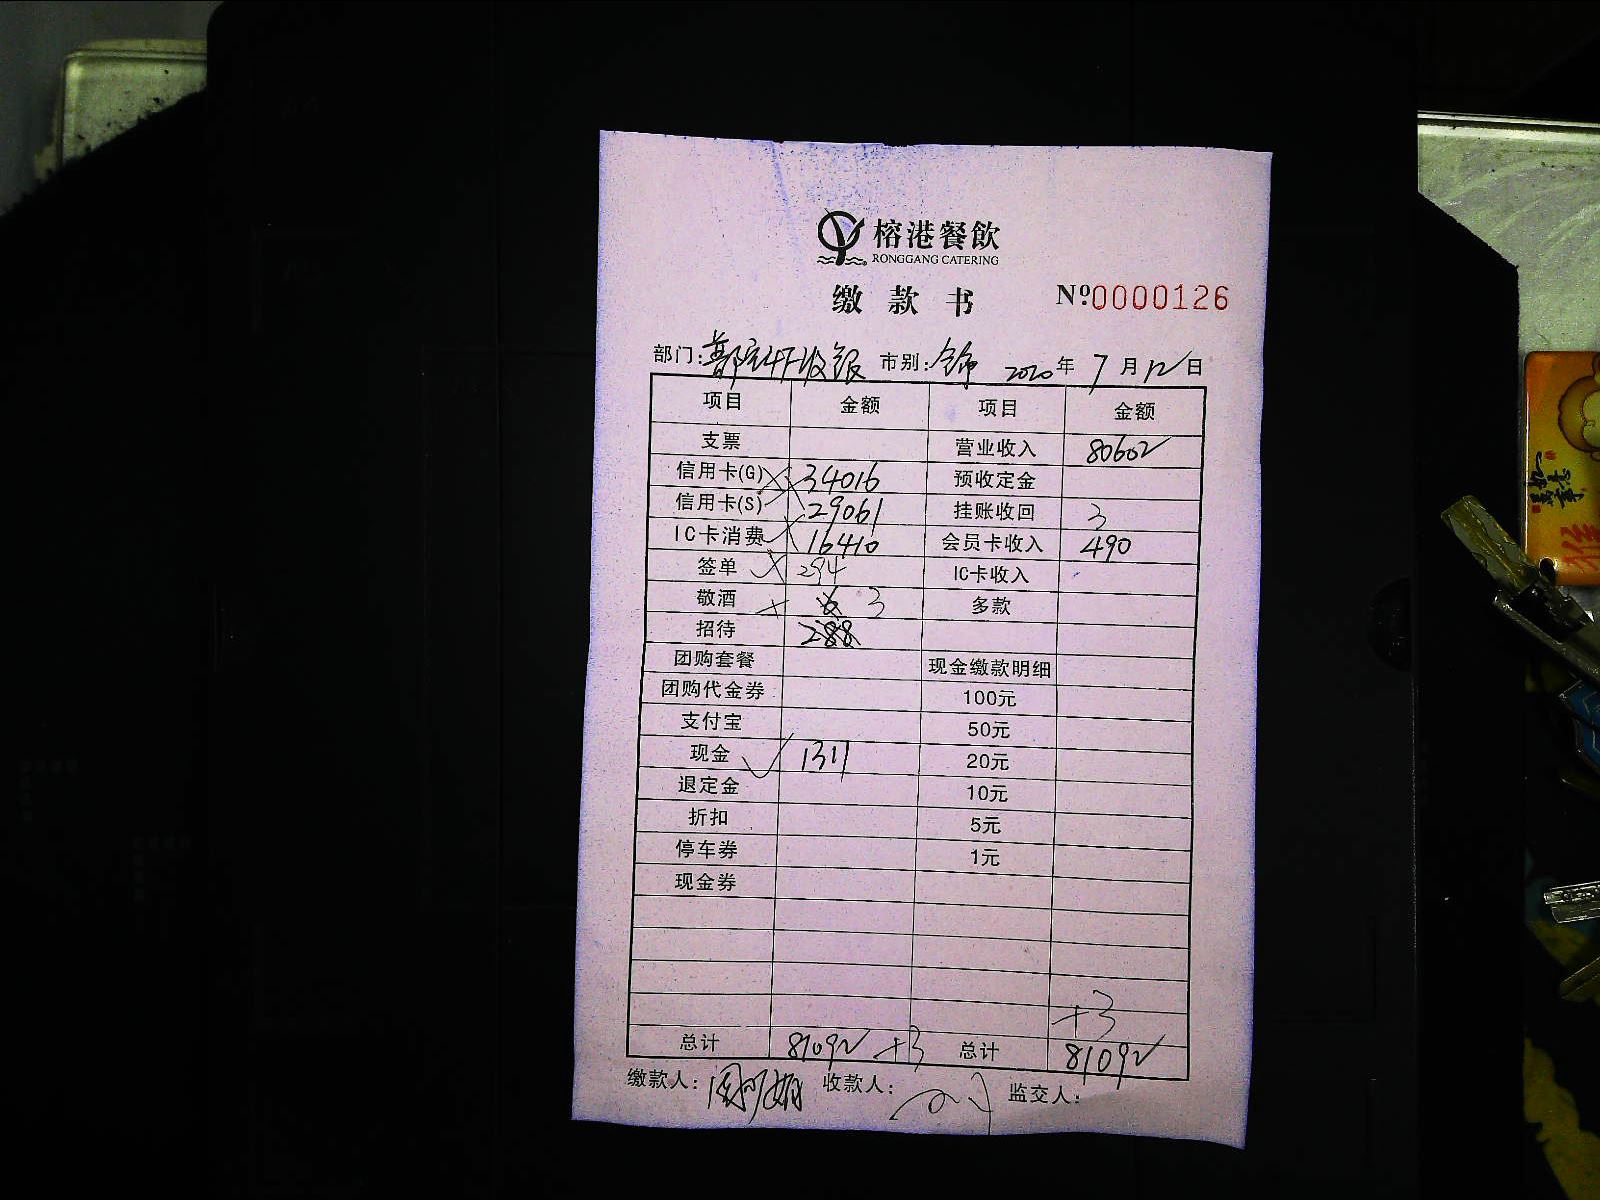 榕港餐飲
RONGGANG CATERING
缴款书 №0000126
部门: 收银 市别: 2020年7月12日
项目 金额 项目 金额
支票 营业收入 80602
信用卡(G) 34016 预收定金
信用卡(S) 29061 挂账收回 3
IC卡消费 16410 会员卡收入 490
签单 294 IC卡收入
敬酒 3 多款
招待 288
团购套餐 现金缴款明细
团购代金券 100元
支付宝 50元
现金 1311 20元
退定金 10元
折扣 5元
停车券 1元
现金券
+3
总计 81092 +3 总计 81092
缴款人: 收款人: 监交人: